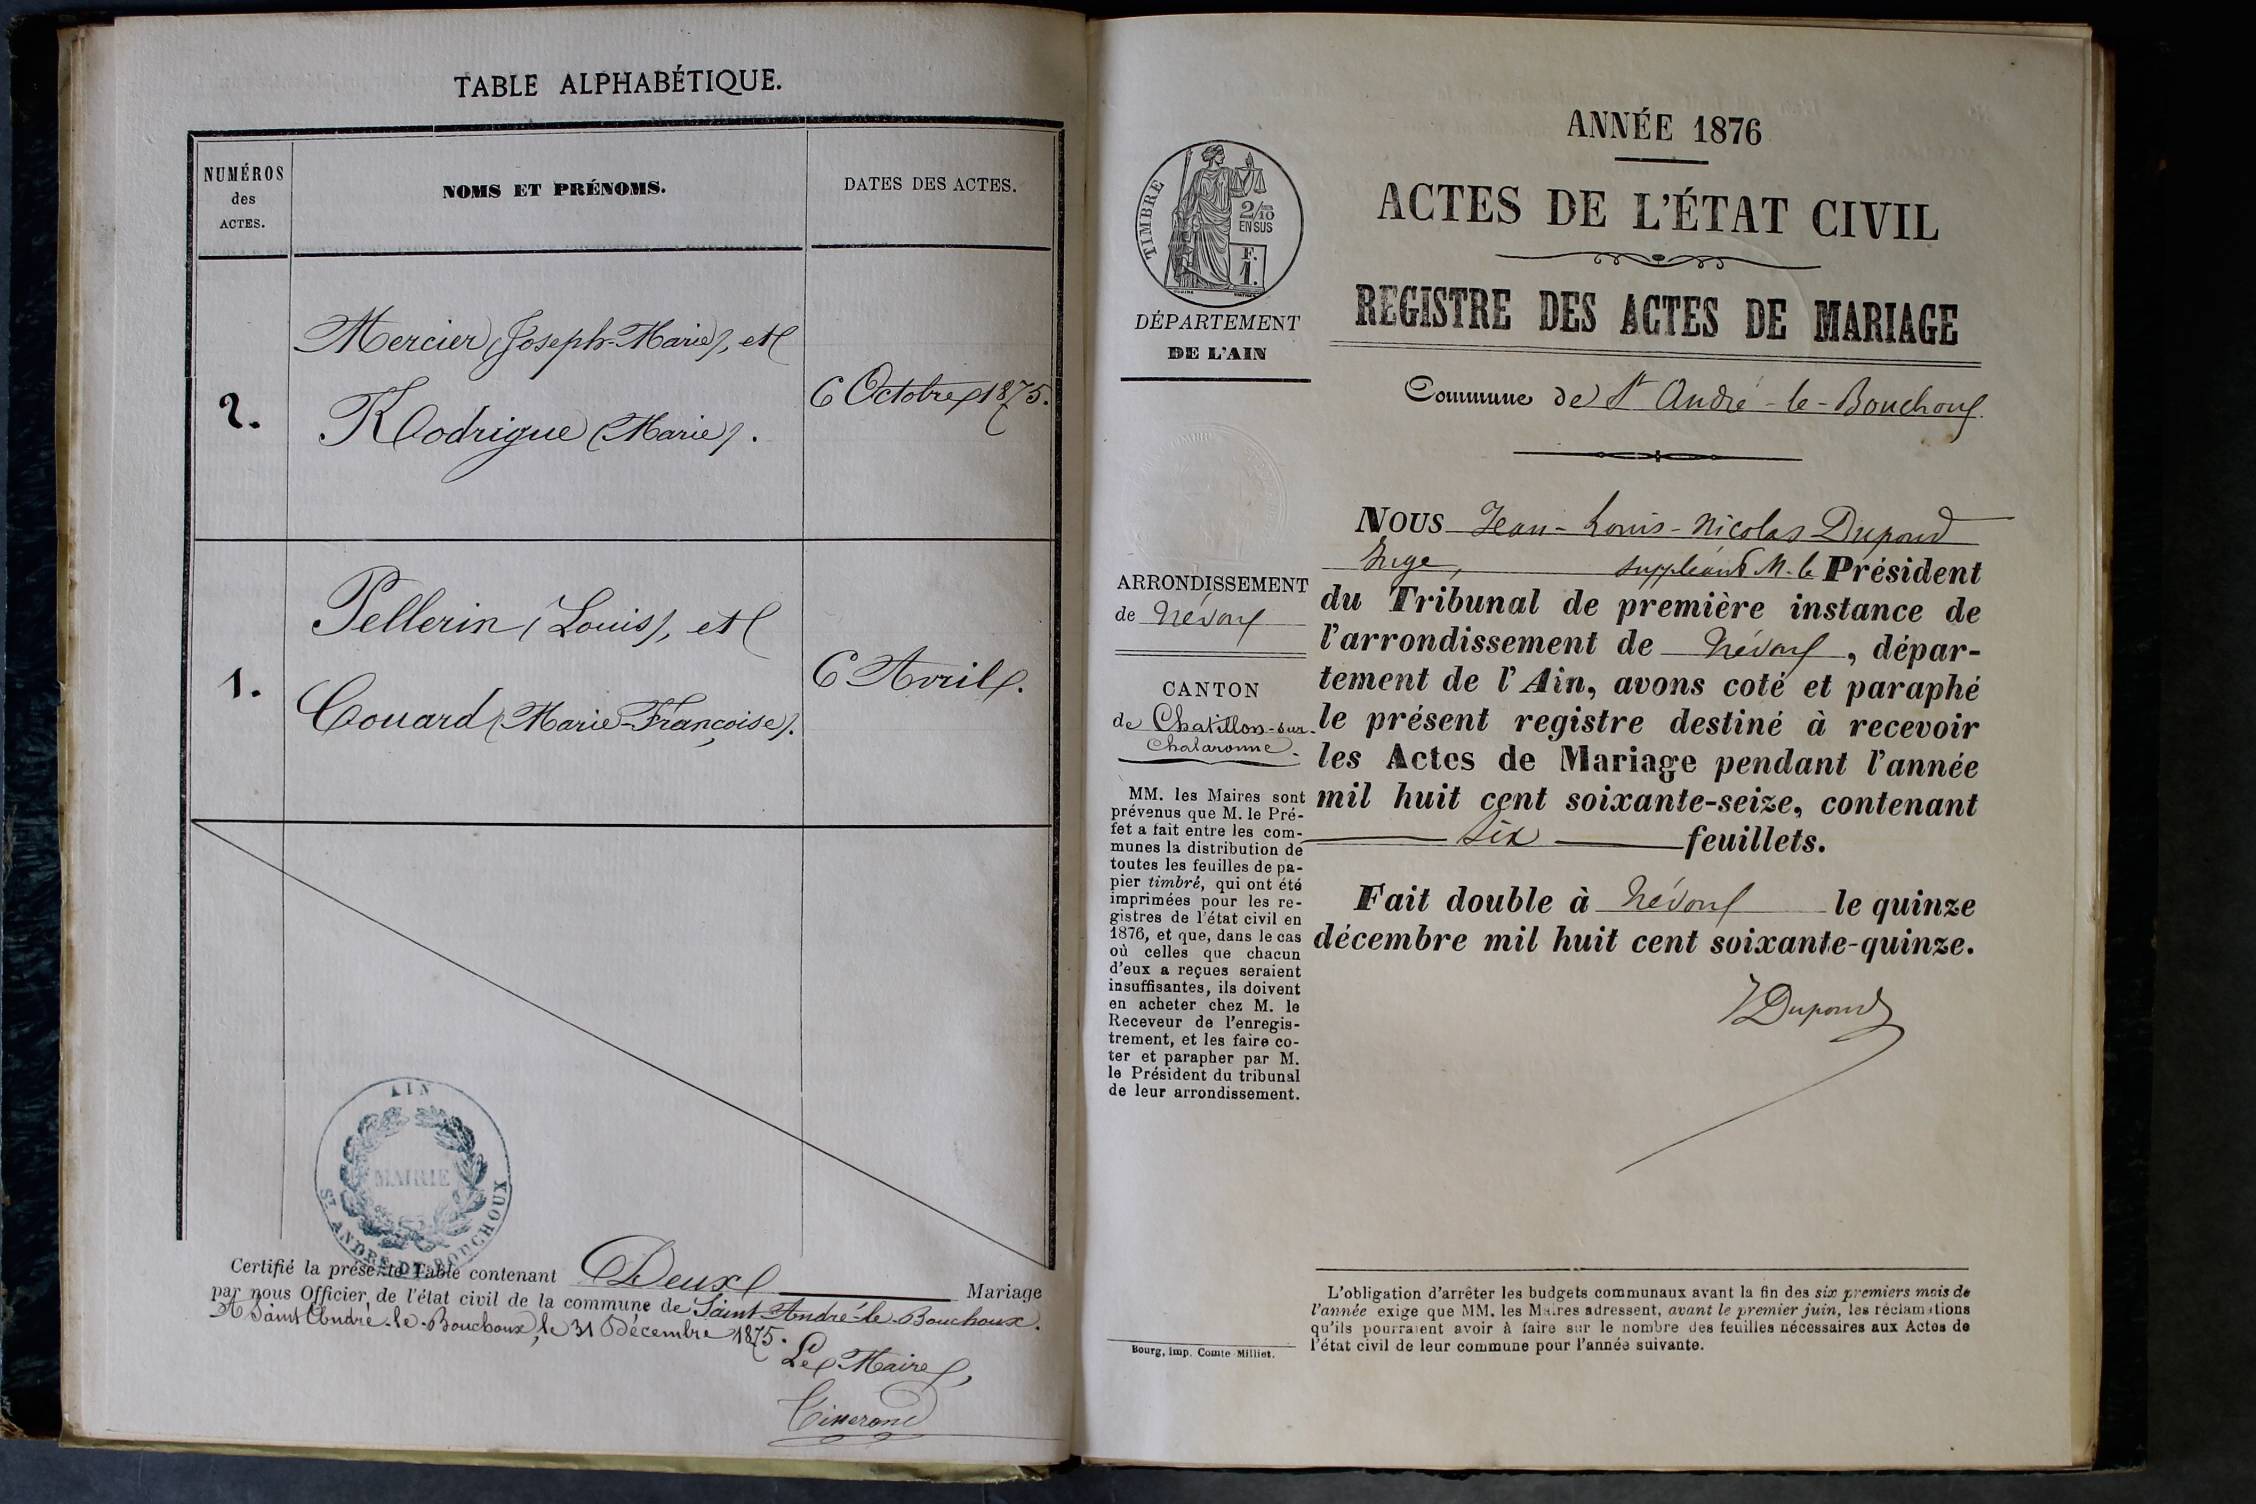 TABLE ALPHABÉTIQUE.
NUMÉROS
des
ACTES.
NOMS ET PRÉNOMS.
DATES DES ACTES.
2.
Mercier (Joseph-Marie), et
Rodrigue (Marie).
6 Octobre 1875.
1.
Pellerin (Louis), et
Couard (Marie-Françoise).
6 Avril.
AIN
MAIRIE
ST ANDRÉ-LE-BOUCHOUX
Certifié la présente Table contenant Deux Mariage
par nous Officier de l'état civil de la commune de Saint-André-le-Bouchoux.
A Saint André-le-Bouchoux, le 31 Décembre 1875.
Le Maire,
ANNÉE 1876
ACTES DE L'ÉTAT CIVIL
REGISTRE DES ACTES DE MARIAGE
Commune de St André-le-Bouchoux
TIMBRE
2/10
EN SUS
F.
1.
DÉPARTEMENT
DE L'AIN
ARRONDISSEMENT
de Trévoux
CANTON
de Chatillon-sur-
Chalaronne.
MM. les Maires sont
prévenus que M. le Pré-
fet a fait entre les com-
munes la distribution de
toutes les feuilles de pa-
pier timbré, qui ont été
imprimées pour les re-
gistres de l'état civil en
1876, et que, dans le cas
où celles que chacun
d'eux a reçues seraient
insuffisantes, ils doivent
en acheter chez M. le
Receveur de l'enregis-
trement, et les faire co-
ter et parapher par M.
le Président du tribunal
de leur arrondissement.
Bourg, imp. Comte-Milliet.
NOUS Jean-Louis-Nicolas Dupond
Juge, suppléant M. le Président
du Tribunal de première instance de
l'arrondissement de Trévoux, dépar-
tement de l'Ain, avons coté et paraphé
le présent registre destiné à recevoir
les Actes de Mariage pendant l'année
mil huit cent soixante-seize, contenant
six feuillets.
Fait double à Trévoux le quinze
décembre mil huit cent soixante-quinze.
Dupond
L'obligation d'arrêter les budgets communaux avant la fin des six premiers mois de
l'année exige que MM. les Maires adressent, avant le premier juin, les réclamations
qu'ils pourraient avoir à faire sur le nombre des feuilles nécessaires aux Actes de
l'état civil de leur commune pour l'année suivante.